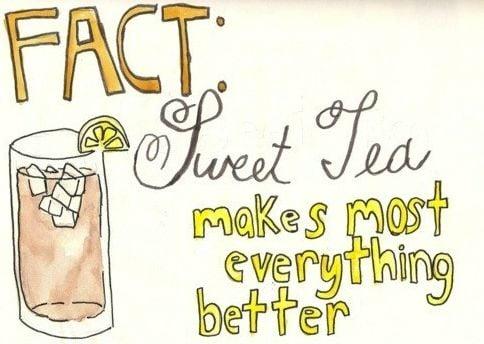 FACT:
Sweet Tea
makes most
everything
better